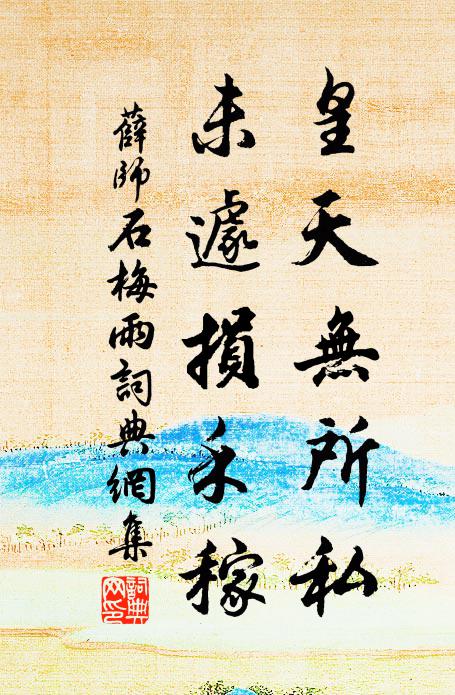 皇天無所私
未遽損禾稼
薛師石梅雨詞典網集
詞典網印